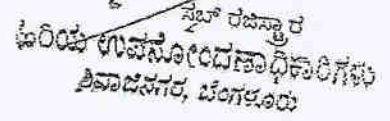 ಸಬ್ ರಜಿಸ್ಟ್ರಾರ
ಹಿರಿಯ ಉಪನೋಂದಣಾಧಿಕಾರಿಗಳು
ಶಿವಾಜಿನಗರ, ಬೆಂಗಳೂರು